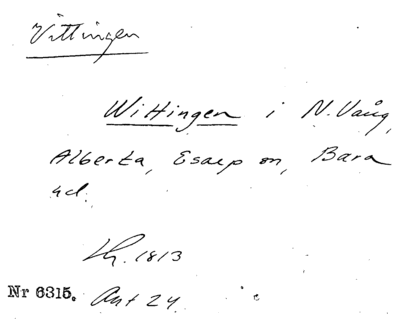 Vittingen
Wittingen i N. Vång,
Alberta, Esarp sn, Bara
hd.
Lh. 1813
Nr 6315. Ant 24.